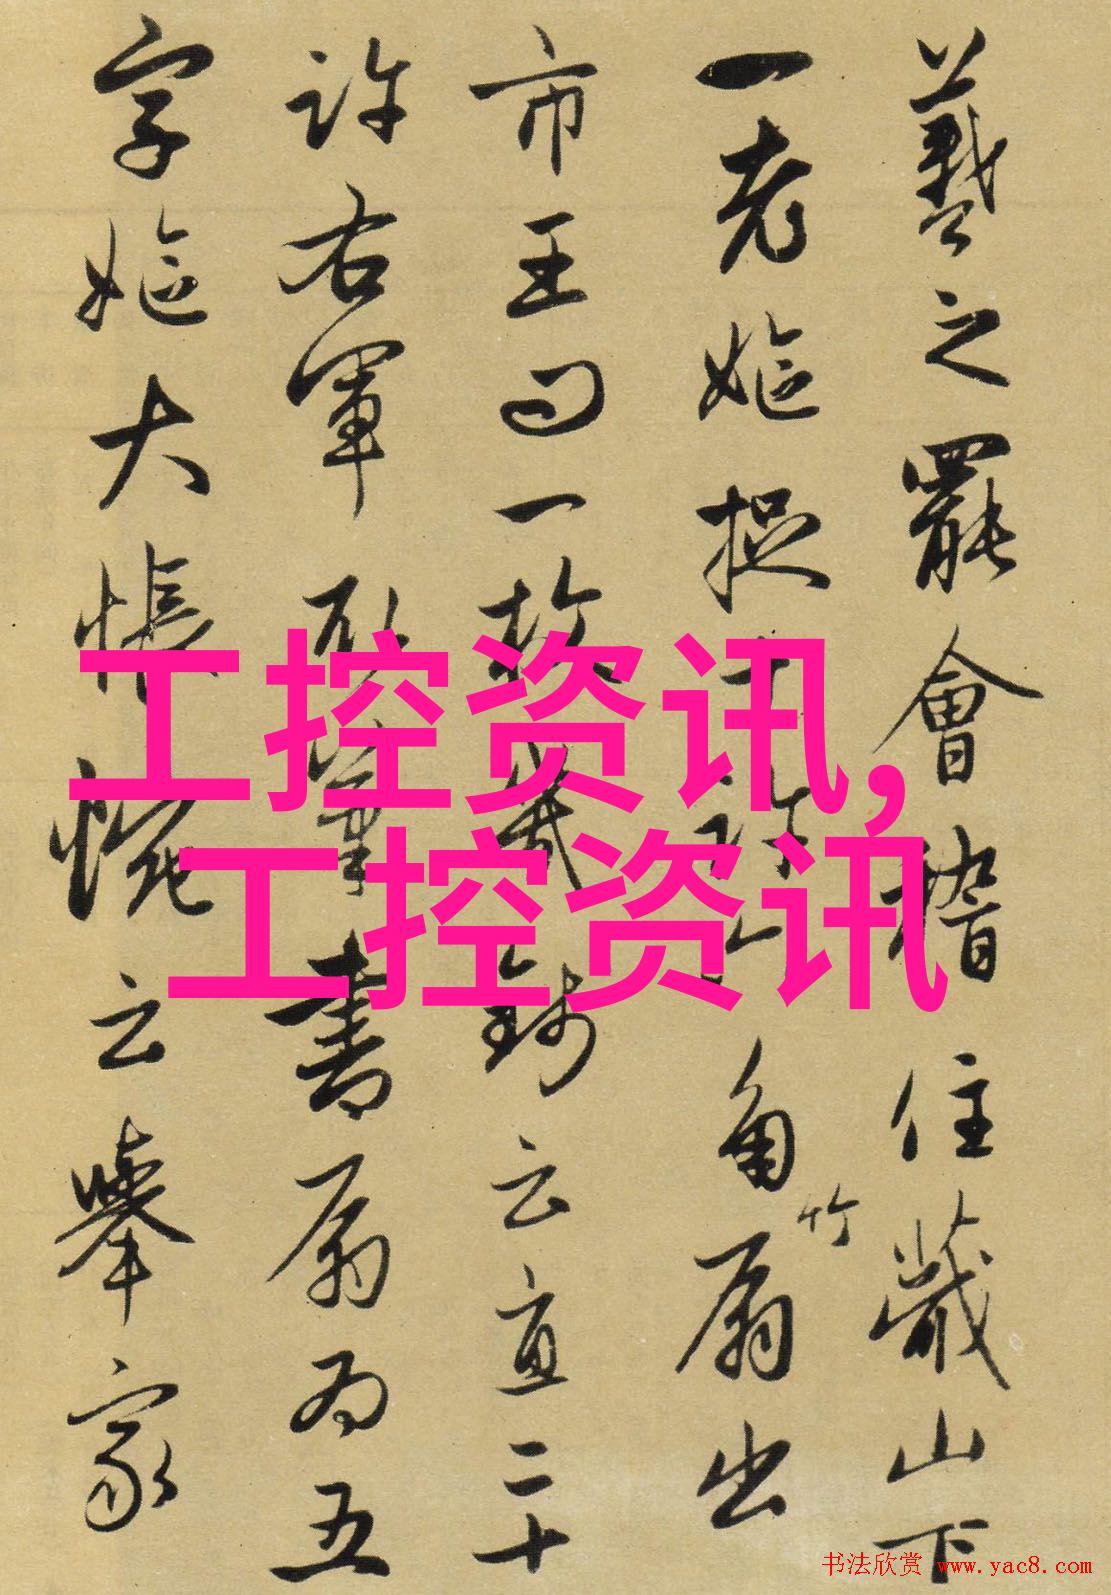 羲之罷會稽住蕺山下
一老嫗捉十許六角竹扇出
市王曰一枚幾錢云直二十
許右軍取筆書扇為五
字嫗大悵惋云舉家
工控资讯,
工控资讯
书法欣赏 www.yac8.com